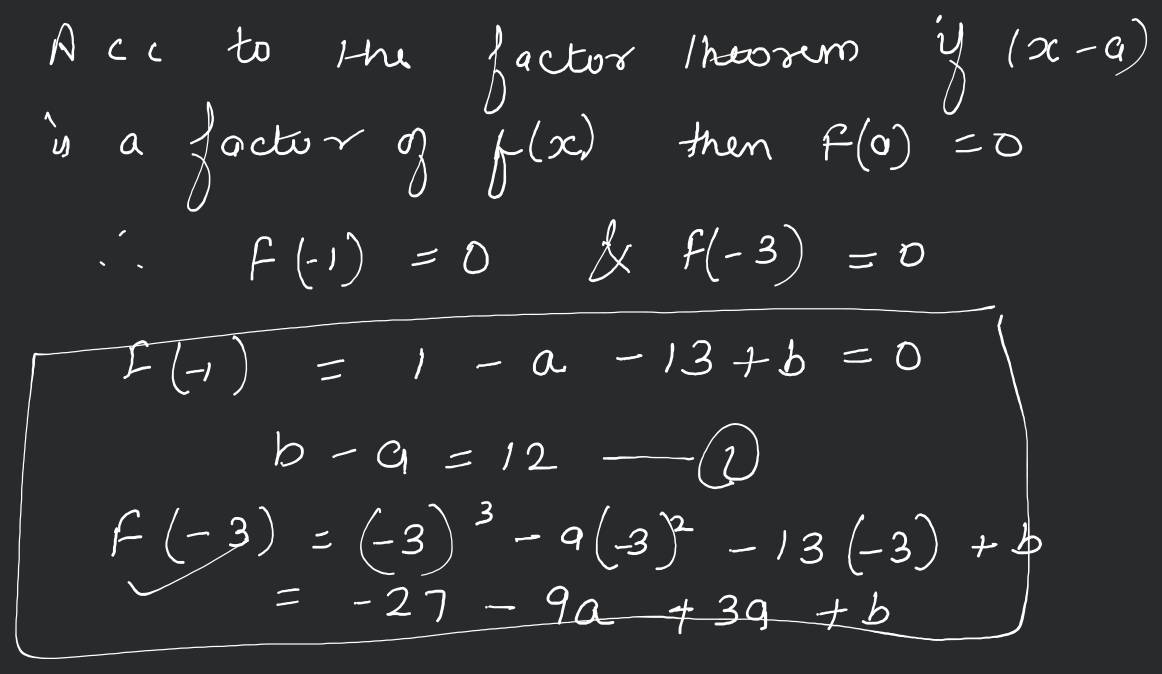 Acc to the factor theorem if (x-a)
is a factor of f(x) then f(a) = 0
∴ f(-1) = 0 & f(-3) = 0
f(-1) = 1 - a - 13 + b = 0
b - a = 12 —①
f(-3) = (-3)³ - a(-3)² - 13(-3) + b
= -27 - 9a + 39 + b